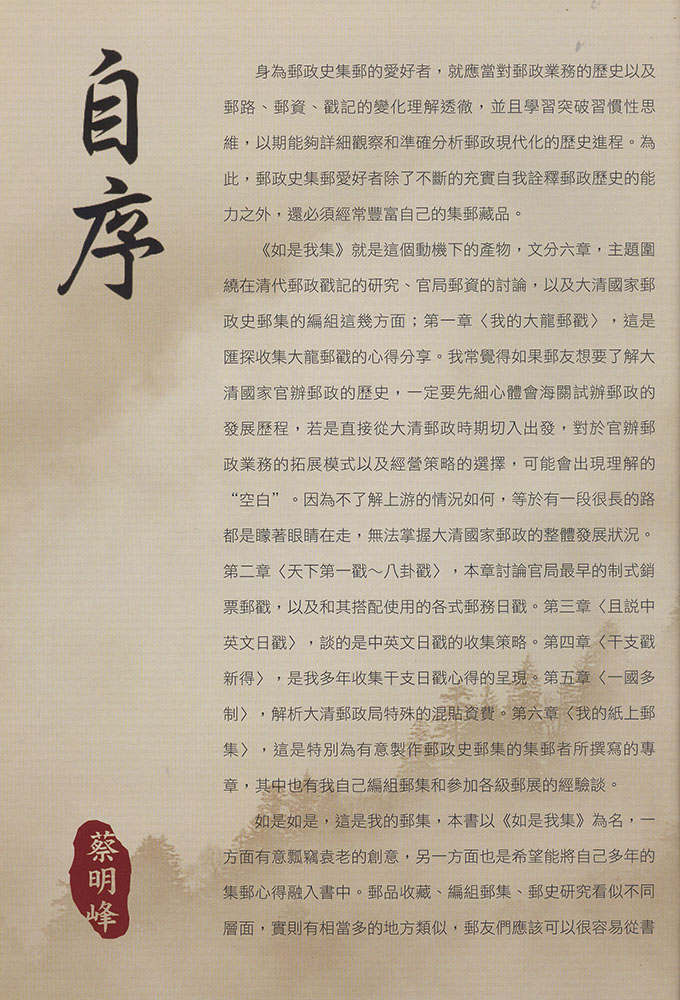 自序
身為郵政史集郵的愛好者，就應當對郵政業務的歷史以及
郵路、郵資、戳記的變化理解透徹，並且學習突破習慣性思
維，以期能夠詳細觀察和準確分析郵政現代化的歷史進程。為
此，郵政史集郵愛好者除了不斷的充實自我詮釋郵政歷史的能
力之外，還必須經常豐富自己的集郵藏品。
《如是我集》就是這個動機下的產物，文分六章，主題圍
繞在清代郵政戳記的研究、官局郵資的討論，以及大清國家郵
政史郵集的編組這幾方面；第一章〈我的大龍郵戳〉，這是
匯探收集大龍郵戳的心得分享。我常覺得如果郵友想要了解大
清國家官辦郵政的歷史，一定要先細心體會海關試辦郵政的
發展歷程，若是直接從大清郵政時期切入出發，對於官辦郵
政業務的拓展模式以及經營策略的選擇，可能會出現理解的
“空白”。因為不了解上游的情況如何，等於有一段很長的路
都是矇著眼睛在走，無法掌握大清國家郵政的整體發展狀況。
第二章〈天下第一戳～八卦戳〉，本章討論官局最早的制式銷
票郵戳，以及和其搭配使用的各式郵務日戳。第三章〈且説中
英文日戳〉，談的是中英文日戳的收集策略。第四章〈干支戳
新得〉，是我多年收集干支日戳心得的呈現。第五章〈一國多
制〉，解析大清郵政局特殊的混貼資費。第六章〈我的紙上郵
集〉，這是特別為有意製作郵政史郵集的集郵者所撰寫的專
章，其中也有我自己編組郵集和參加各級郵展的經驗談。
如是如是，這是我的郵集，本書以《如是我集》為名，一
方面有意瓢竊袁老的創意，另一方面也是希望能將自己多年的
集郵心得融入書中。郵品收藏、編組郵集、郵史研究看似不同
層面，實則有相當多的地方類似，郵友們應該可以很容易從書
蔡明峰